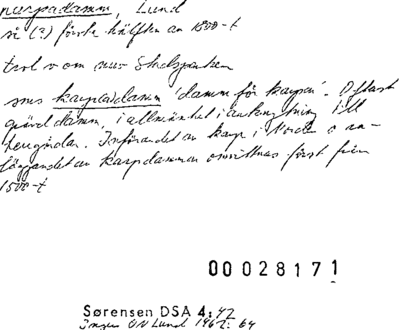 karpadamm, Lund
si (?) förste hälften av 1800-t
trol v om nuv Stadsparken
sms karpadamm 'damm för karpar'. Oftast
grävd damm, i allmänhet i anknytning till
. Införandet av karp i Norden o an-
läggandet av karpdammar omvittnas först från
1500-t
00028171
Sørensen DSA 4:42
Ingers ON Lund 1962: 64